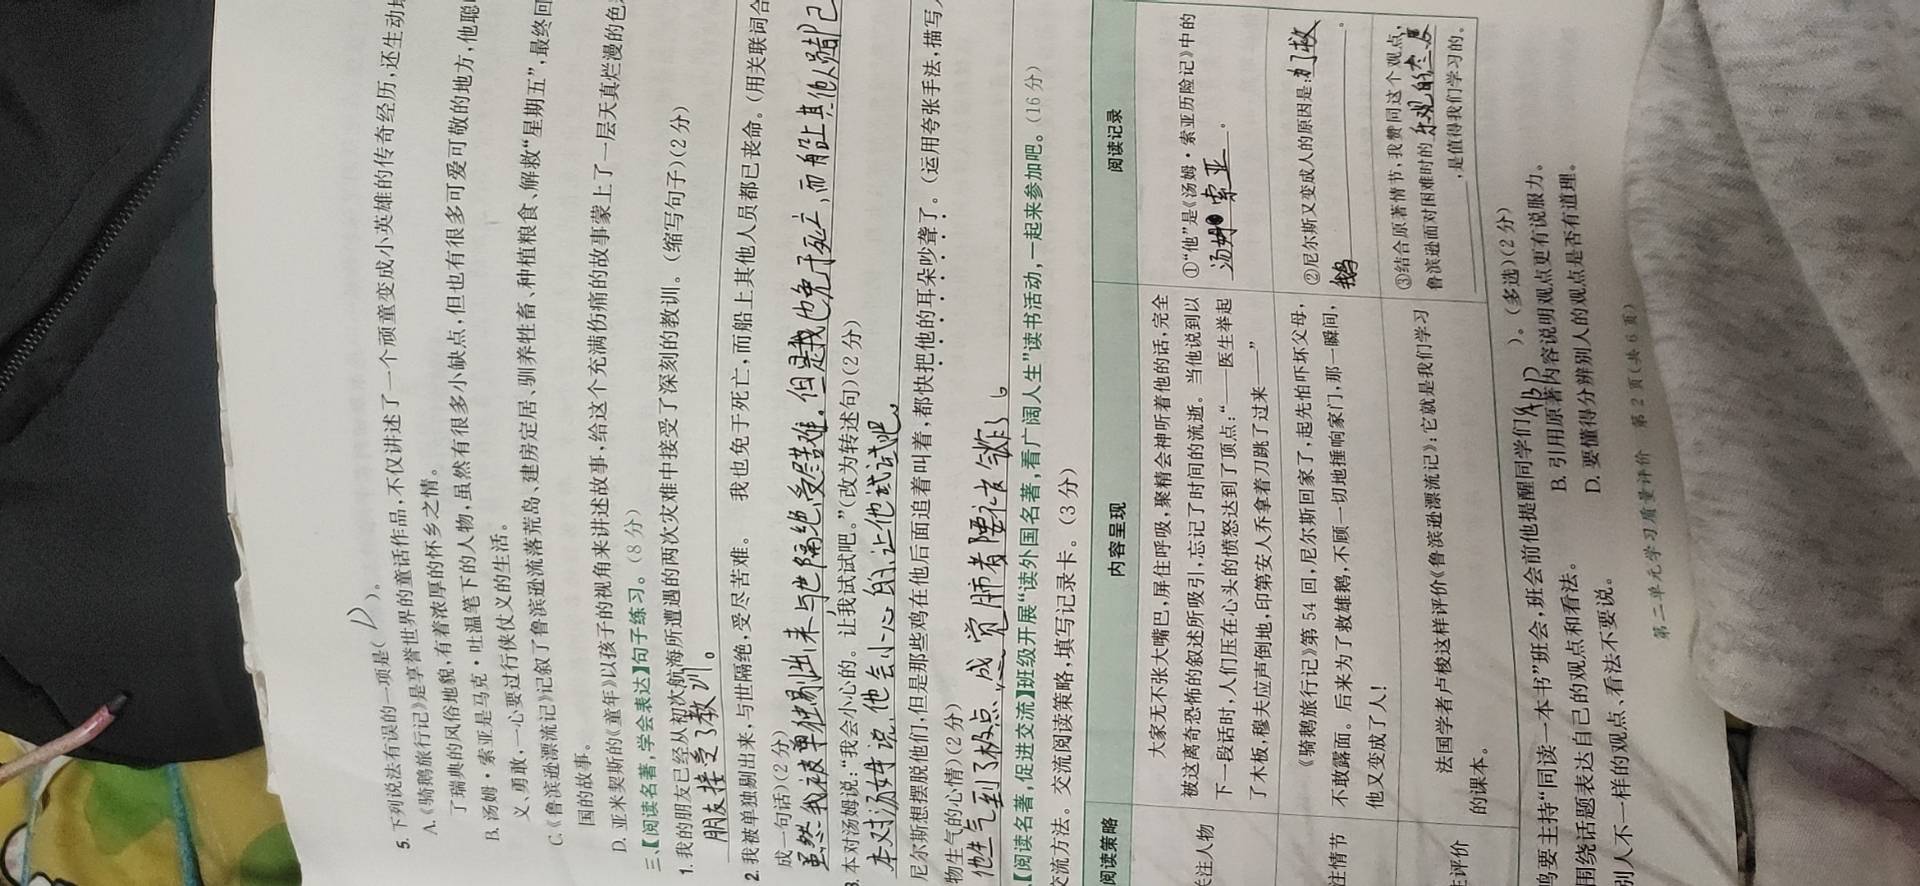 5. 下列说法有误的一项是( D )。
A.《骑鹅旅行记》是享誉世界的童话作品,不仅讲述了一个顽童变成小英雄的传奇经历,还生动地
了瑞典的风俗地貌,有着浓厚的怀乡之情。
B. 汤姆·索亚是马克·吐温笔下的人物,虽然有很多小缺点,但也有很多可爱可敬的地方,他聪
义、勇敢,一心要过行侠仗义的生活。
C.《鲁滨逊漂流记》记叙了鲁滨逊流落荒岛、建房定居、驯养牲畜、种植粮食、解救“星期五”,最终回
国的故事。
D. 亚米契斯的《童年》以孩子的视角来讲述故事,给这个充满伤痛的故事蒙上了一层天真烂漫的色
三、【阅读名著,学会表达】句子练习。(8分)
1. 我的朋友已经从初次航海所遭遇的两次灾难中接受了深刻的教训。(缩写句子)(2分)
朋友接受了教训。
2. 我被单独剔出来,与世隔绝,受尽苦难。 我也免于死亡,而船上其他人员都已丧命。(用关联词合
成一句话)(2分)
虽然我被单独剔出来与世隔绝,受尽苦难。但是我也免于死亡,而船上其他人员都已
3. 本对汤姆说:“我会小心的。让我试试吧。”(改为转述句)(2分)
本对汤姆说,他会小心的,让他试试吧。
尼尔斯想摆脱他们,但是那些鸡在他后面追着叫着,都快把他的耳朵吵聋了。(运用夸张手法,描写
物生气的心情)(2分)
他生气到了极点,感觉肺都要被气炸了。
【阅读名著,促进交流】班级开展“读外国名著,看广阔人生”读书活动,一起来参加吧。(16分)
交流方法。交流阅读策略,填写记录卡。(3分)
阅读策略 内容呈现 阅读记录
关注人物
大家无不张大嘴巴,屏住呼吸,聚精会神听着他的话,完全
被这离奇恐怖的叙述所吸引,忘记了时间的流逝。当他说到以
下一段话时,人们压在心头的愤怒达到了顶点:“——医生举起
了木板,穆夫应声倒地,印第安人乔拿着刀跳了过来——”
①“他”是《汤姆·索亚历险记》中的
汤姆·索亚。
注情节
《骑鹅旅行记》第54回,尼尔斯回家了,起先怕吓坏父母,
不敢露面。后来为了救雄鹅,不顾一切地捶响家门,那一瞬间,
他又变成了人!
②尼尔斯又变成人的原因是:为了救
鹅。
评价
法国学者卢梭这样评价《鲁滨逊漂流记》:它就是我们学习
的课本。
③结合原著情节,我赞同这个观点,
鲁滨逊面对困难时的乐观的态度
,是值得我们学习的。
鸣要主持“同读一本书”班会,班会前他提醒同学们( )。(多选)(2分)
围绕话题表达自己的观点和看法。
B. 引用原著内容说明观点更有说服力。
别人不一样的观点、看法不要说。
D. 要懂得分辨别人的观点是否有道理。
第二单元学习质量评价 第2页(共6页)